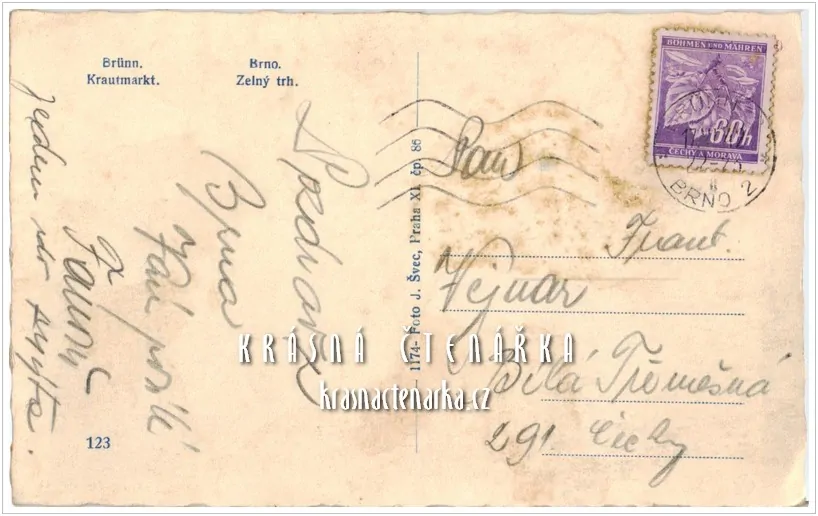 Brünn.
Krautmarkt.
Brno.
Zelný trh.
Pozdrav z
Brna
Vám posílá
Fanouš
Jedem do
1174- Foto J. Švec, Praha XI. čp. 86
123
BÖHMEN UND MÄHREN
60h
ČECHY A MORAVA
BRÜNN 2
BRNO 2
Pan
Frant.
Vejnar
Bílá Třemešná
291. Čechy
KRÁSNÁ ČTENÁŘKA
krasnactenarka.cz